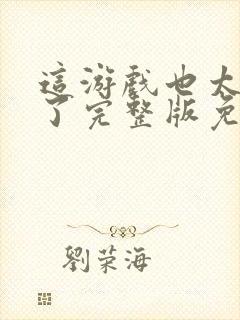 這游戲也太
了完整版免
劉荣海